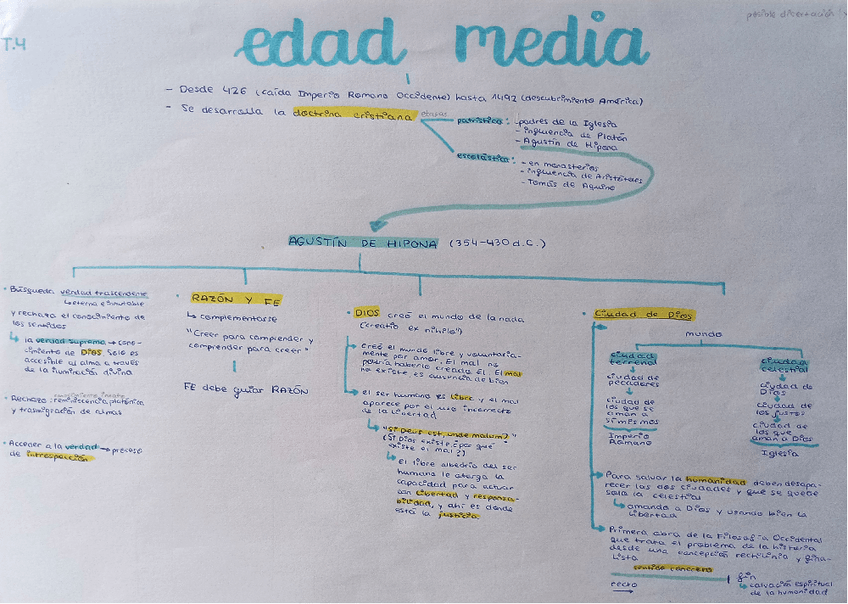 posible disertación
T.4
edad media
- Desde 426 (caída Imperio Romano Occidente) hasta 1492 (descubrimiento América)
- Se desarrolla la doctrina cristiana
etapas
patrística: - padres de la Iglesia
- influencia de Platón
- Agustín de Hipona
escolástica: - en monasterios
- influencia de Aristóteles
- Tomás de Aquino
AGUSTÍN DE HIPONA (354-430 d.C.)
• Búsqueda verdad trascendente
↳ eterna e inmutable
y rechaza el conocimiento de
los sentidos
↳ la verdad suprema → cono-
cimiento de DIOS solo es
accesible al alma a través
de la iluminación divina
• Rechaza: reminiscencia platónica
y trasmigración de almas
• Acceder a la verdad → proceso
de introspección
• RAZÓN Y FE
↳ complementarse
"Creer para comprender y
comprender para creer"
FE debe guiar RAZÓN
• DIOS creó el mundo de la nada
(creatio ex nihilo")
↳ Creó el mundo libre y voluntaria-
mente por amor. El mal no
podría haberlo creado él. El mal
no existe es ausencia de bien
↳ el ser humano es libre y el mal
aparece por el uso incorrecto
de la libertad
↳ "Si Deus est, unde malum?"
(Si Dios existe, ¿por qué
existe el mal?)
↳ el libre albedrío del ser
humano le otorga la
capacidad para actuar
con libertad y responsa-
bilidad, y ahí es donde
está la justicia
• Ciudad de Dios
mundo
ciudad
terrenal
↓
ciudad de
pecadores
↓
ciudad de
los que se
aman a
sí mismos
Imperio
Romano
ciudad
celestial
↓
ciudad de
Dios
↓
ciudad de
los justos
↓
ciudad de
los que
aman a Dios
Iglesia
Para salvar la humanidad deben desapa-
recer las dos ciudades y que se quede
sola la celestial
↳ amando a Dios y usando bien la
libertad
Primera obra de la Filosofía Occidental
que trata el problema de la historia
desde una concepción rectilínia y fina-
lista
sentido concreto
recto
fin
↳ salvación espiritual
de la humanidad